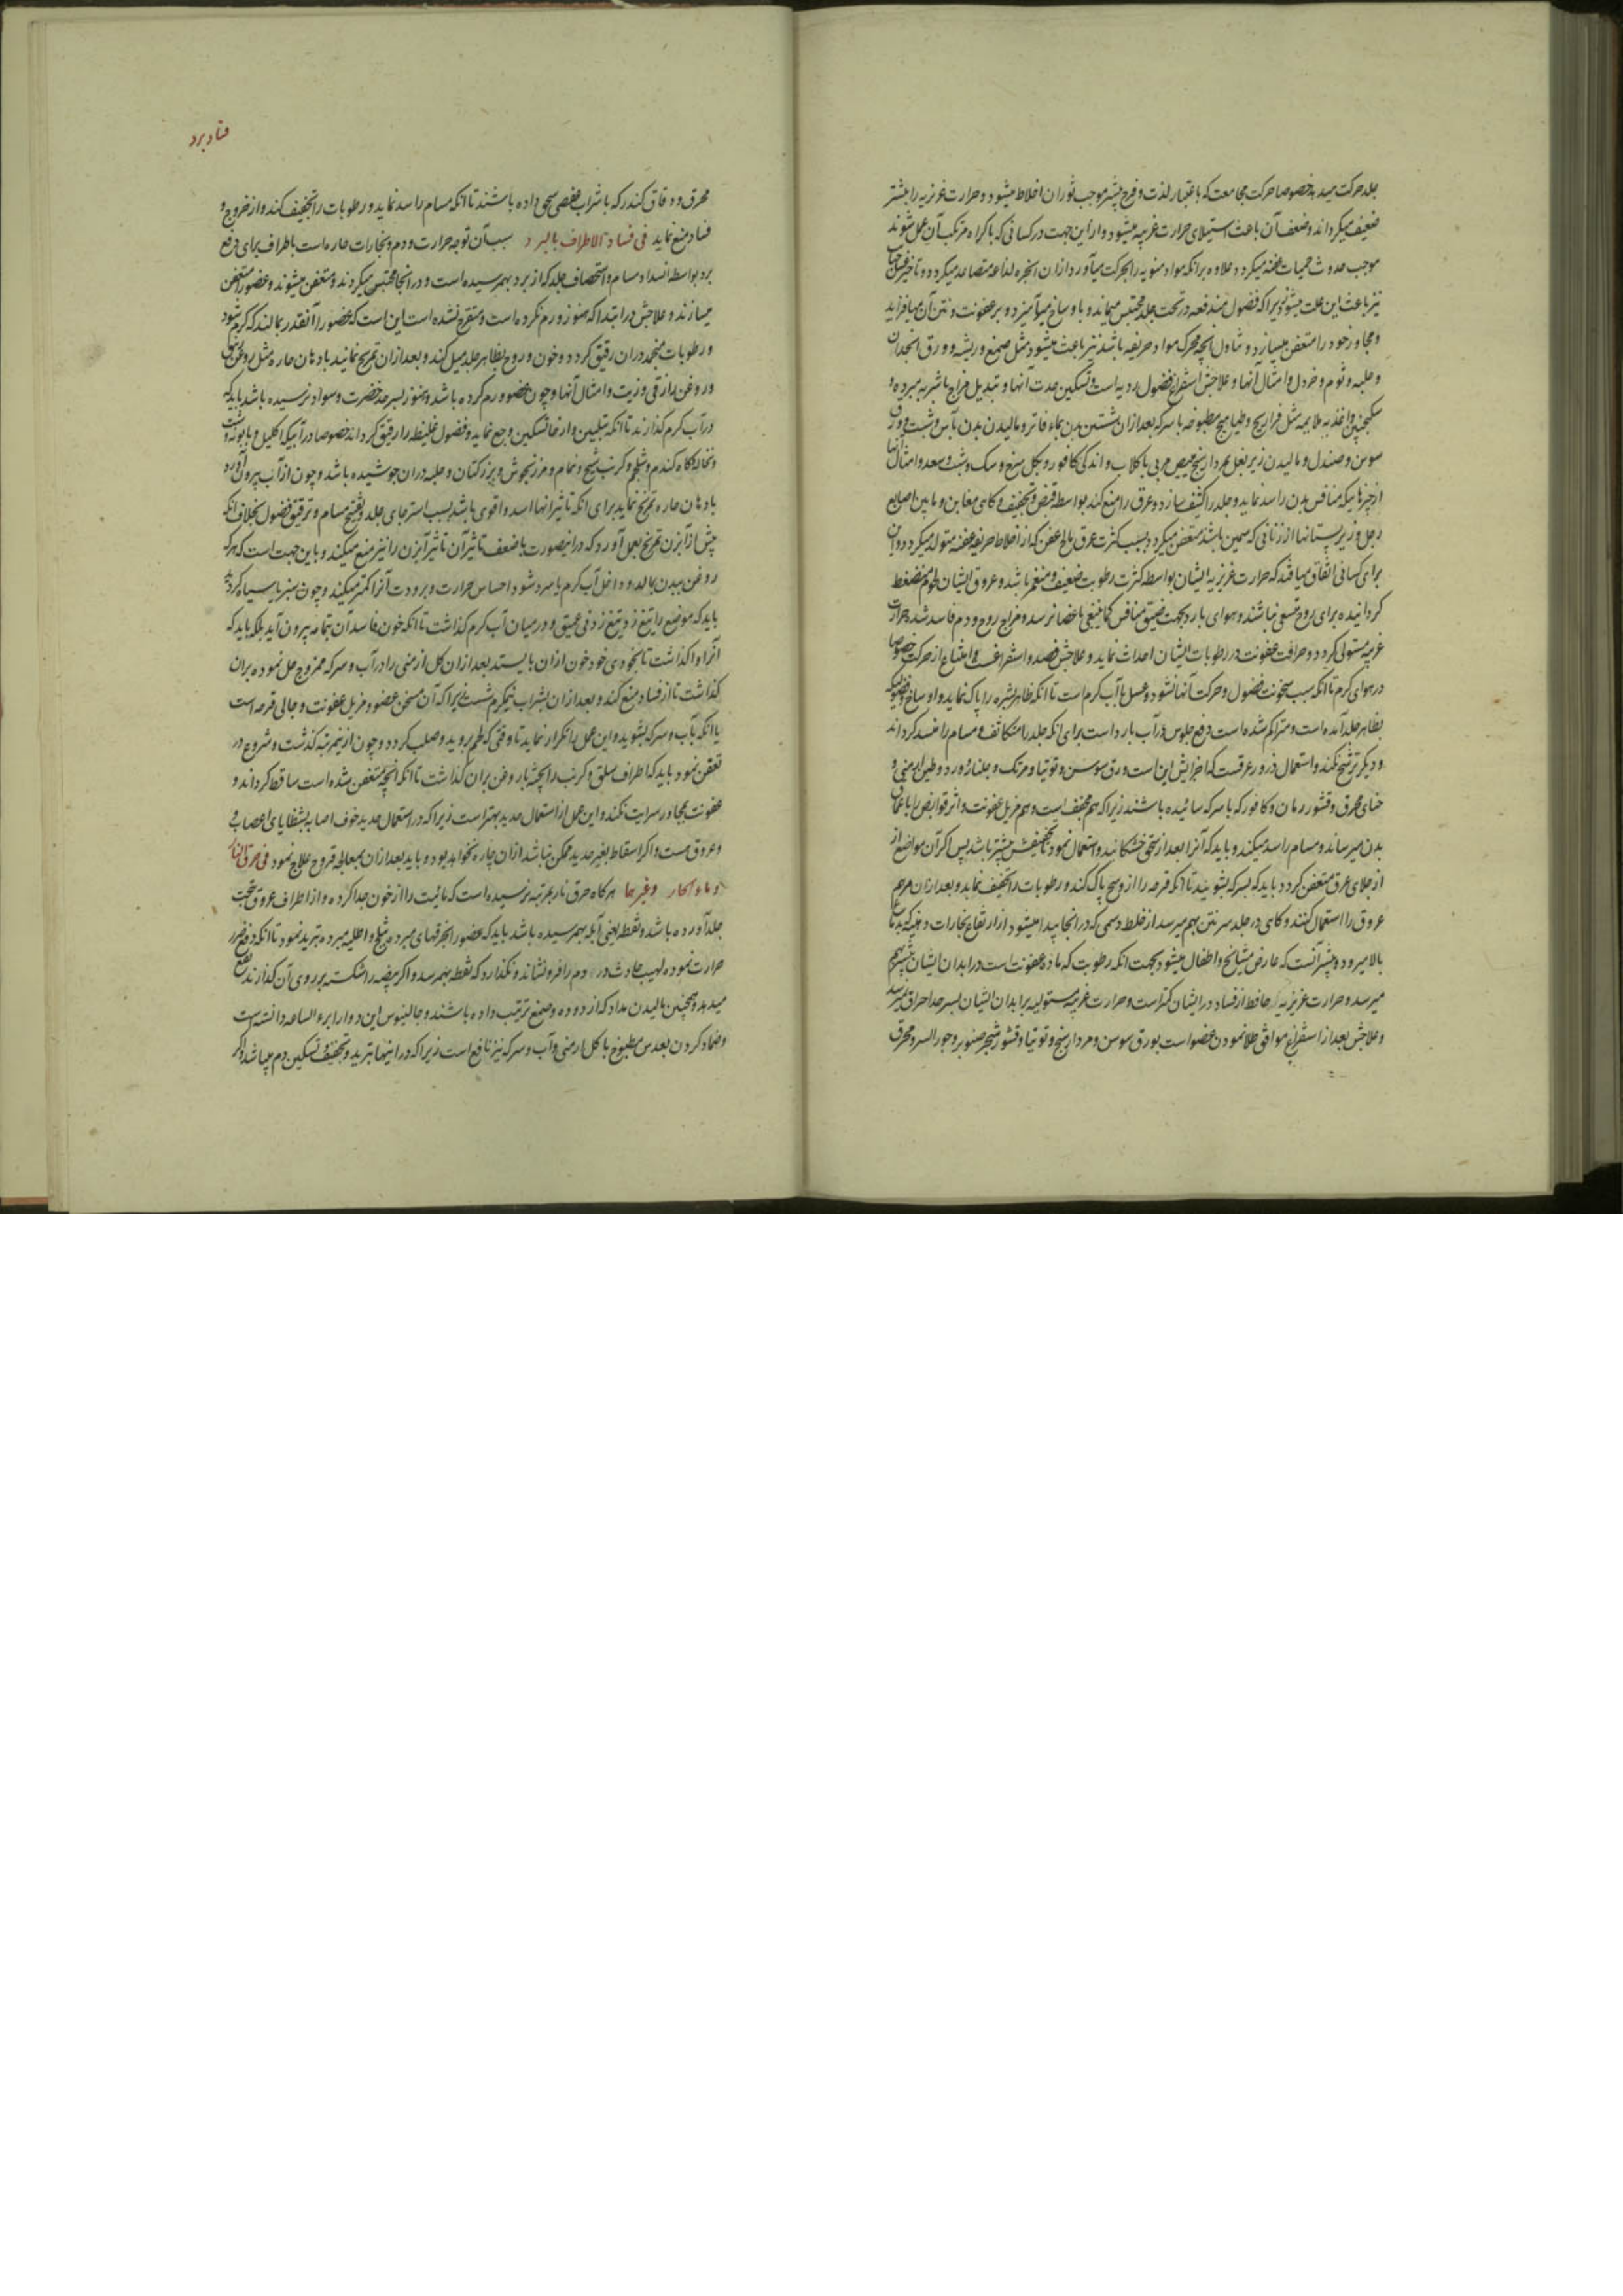 جلد حرکت میدهد خصوصا حرکت مجامعت که باعتبار لذت و فرح بیشتر موجب ثوران اخلاط میشود و حرارت غریزیه را بیشتر
ضعیف میگرداند و ضعف آن باعث استیلای حرارت غریبه میشود و از این جهت در کسانی که باکراه مرتکب آن عمل شوند
موجب حدوث حمیات عفنه میگردد و علاوه برانکه مواد منویه را بحرکت میآورد ازان ابخره لذاعه متصاعد میگردد و تاخیر غسل
نیز باعث این علت میشود زیرا که فضول مندفعه در تحت جلد محتبس میماند و با وساخ میآمیزد و بر عفونت و نتن آن میافزاید
و مجاور خود را متعفن میسازد و تناول انچه محرک مواد حریفه باشد نیز باعث میشود مثل صمغ و ریشه و ورق انجدان
و حلبه و ثوم و خردل و امثال آنها و علاجش استفراغ فضول ردیه است و تسکین حدت آنها و تبدیل مزاج باشربه مبرده و
سکنجبین و اغذیه ملایمه مثل فراریج و طیاهیج مطبوخه با سرکه بعد ازان شستن بدن بماء فاتر و مالیدن بدن بآس و شب و ورق
سوسن و صندل و مالیدن زیر بغل بمردارسنج مبیض مربی با گلاب و اندکی کافور و بگل سرخ و سک و شب و سعد و امثال آنها
از چیزهائیکه منافس بدن را سد نماید و جلد را کثیف سازد و عرق را منع کند بواسطه قبض و تجفیف و گاهی مغابن و مابین اصابع
رجل و زیر پستانها از زنانی که سمین باشند متعفن میگردد بسبب کثرت عرق مالح عفن که از اخلاط حریفه عفنه متولد میگردد و این
برای کسانی اتفاق میافتد که حرارت غریزیه ایشان بواسطه کثرت رطوبت ضعیف و منغمر باشد و عروق ایشان لحوم منضغط
گردانیده برای روح متسعی نباشند و هوای بارد بجهت ضیق منافس کما ینبغی باعضا نرسد و مزاج روح و دم فاسد شده حرارت
غریبه مستولی گردد و حرافت عفونت در رطوبات ایشان احداث نماید و علاجش فصد و استفراغست و امتناع از حرکت خصوصا
در هوای گرم تا انکه سبب سخونت فضول و حرکت آنها نشود و غسل بآب گرم است تا انکه ظاهر بشره را پاک نماید و اوساخ و فضولیکه
بظاهر جلد آمده است و متراکم شده است دفع جلوس در آب بارد است برای انکه جلد را متکاثف و مسام را منسد گرداند
و دیگر ترشح نکند و استعمال ذرور عرقست که اجزایش این است ورق سوسن و توتیا و مرتک و جلنار و ورد و طین ارمنی و
حنای محرق و قشور رمان و کافور که با سرکه سائیده باشند زیرا که هم مجفف است و هم مزیل عفونت و اثر قوابض را باعماق
بدن میرساند و مسام را سد میکند و باید که آنرا بعد از سحق خشکانید و استعمال نمود تا تجفیفش بیشتر باشد پس اگر آن مواضع از
از جلای عرق متعفن گردد باید که بسرکه بشویند تا انکه قرحه را از وسخ پاک کند و رطوبات را تجفیف نماید و بعد ازان مرهم
عروق را استعمال کنند و گاهی در جلد سر نتن بهم میرسد از خلط دسمی که در انجا پیدا میشود از ارتفاع بخارات دهنیه که بدماغ
بالا میرود و بیشتر آنست که عارض مشایخ و اطفال میشود بجهت انکه رطوبت که ماده عفونت است در ابدان ایشان بیشتر بهم
میرسد و حرارت غریزیه حافظ از فساد در ایشان کمتر است و حرارت غریبه مستولیه بر ابدان ایشان بسرحد احراق نمیرسد
و علاجش بعد از استفراغ موافق طلا نمودن عضو است بورق سوسن و مردارسنج و توتیا و قشور شجر صنوبر و جوز السرو محرق
فساد برد
محرق و دقاق کندر که باشراب عفصی سحق داده باشند تا انکه مسام را سد نماید و رطوبات را تجفیف کند و از خروج و
فساد منع نماید فی فساد الاطراف بالبرد سبب آن توجه حرارت و دم و بخارات حاره است باطراف برای دفع
برد بواسطه انسداد مسام و استحصاف جلد که از برد بهمرسیده است و در انجا محتبس میگردند و متعفن میشوند و عضو را متعفن
میسازند و علاجش در ابتدا که هنوز ورم نکرده است و متقرح نشده است این است که عضو را آنقدر بمالند که گرم شود
و رطوبات منجمد دران رقیق گردد و خون و روح بظاهر جلد میل کند و بعد ازان تمریخ نمایند بادهان حاره مثل روغن زنبق
و روغن رازقی و زیت و امثال آنها و چون عضو ورم کرده باشد و هنوز بسرحد خضرت و سواد نرسیده باشد باید که
در آب گرم گذارند تا انکه بتلیین و ارخا تسکین وجع نماید و فضول غلیظ را رقیق گرداند خصوصا در آبیکه اکلیل و بابونه و شبت
و نخاله کاه گندم و شلجم و کرنب و شیح و نمام و مرزنجوش و بزر کتان و حلبه دران جوشیده باشد و چون از آب بیرون آورد
بادهان حاره تمریخ نماید برای انکه تاثیر انها اسد و اقوی باشد بسبب استرخای جلد و تفتیح مسام و ترقیق فضول بخلاف انکه
پیش از آبزن تمریخ بعمل آورد که در اینصورت با ضعف تاثیر آن تاثیر آبزن را نیز منع میکند و باین جهت است که هرکه
روغن ببدن بمالد و داخل آب گرم یا سرد شود احساس حرارت و برودت آنرا کمتر میکند و چون سبز یا سیاه گردد
باید که موضع را تیغ زد تیغ زدنی عمیق و در میان آب گرم گذاشت تا انکه خون فاسد آن بتمامه بیرون آید بلکه باید که
آنرا واگذاشت تا بخودی خود خون ازان بایستد بعد ازان گل ارمنی را در آب و سرکه ممزوج حل نموده بران
گذاشت تا از فساد منع کند و بعد ازان بشراب نیمگرم شست زیرا که آن مسخن عضو و مزیل عفونت و جالی قرحه است
یا انکه بآب و سرکه بشوید و این عمل را تکرار نماید تا وقتی که لحم بروید و صلب گردد و چون ازینمرتبه گذشت و شروع در
تعفن نمود باید که اطراف سلق و کرنب را پخته با روغن بران گذاشت تا انکه انچه متعفن شده است ساقط گرداند و
عفونت بمجاور سرایت نکند و این عمل از استعمال حدید بهتر است زیرا که در استعمال حدید خوف اصابه بشظایای اعصاب و
و عروق هست و اگر اسقاط بغیر حدید ممکن نباشد ازان چاره نخواهد بود و باید بعد ازان بمعالجه قروح علاج نمود فی حرق النار
و ماء الحار و غیرها هرگاه حرق نار بمرتبه نرسیده است که مائیت را از خون جدا کرده و از اطراف عروق تحت
جلد آورده باشد و نفطه یعنی آبله بهمرسیده باشد باید که عضو را بخرقهای مبرده بثلج و اطلیه مبرده تبرید نمود تا انکه دفع ضرر
حرارت نموده لهیب حادث در دم را فرو نشاند و نگذارد که نفطه بهمرسد و اگر بیضه را شکسته بر روی آن گذارند نفع
میدهد و همچنین مالیدن مداد که از دوده و صمغ ترتیب داده باشند و جالینوس این دوا را ابرء الساعه دانسته است
و ضماد کردن بعدس مطبوخ با گل ارمنی و آب و سرکه نیز نافع است زیرا که در اینها تبرید و تجفیف و تسکین دم میباشد و اگر